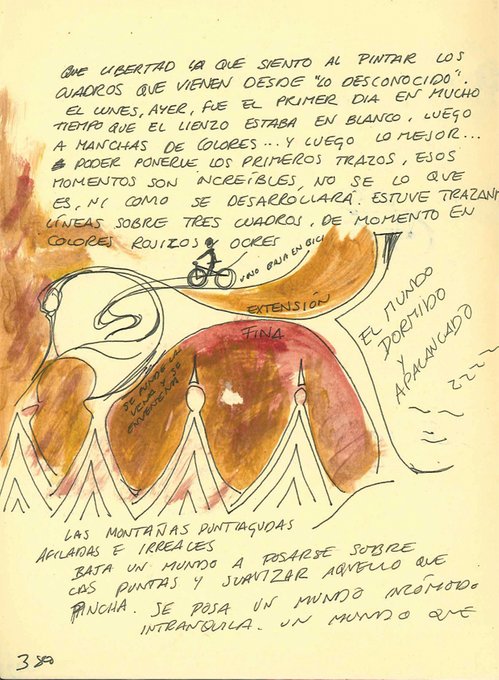 QUE LIBERTAD LA QUE SIENTO AL PINTAR LOS
CUADROS QUE VIENEN DESDE "LO DESCONOCIDO".
EL LUNES, AYER, FUE EL PRIMER DIA EN MUCHO
TIEMPO QUE EL LIENZO ESTABA EN BLANCO, LUEGO
A MANCHAS DE COLORES... Y LUEGO LO MEJOR...
PODER PONERLE LOS PRIMEROS TRAZOS, ESOS
MOMENTOS SON INCREÍBLES, NO SE LO QUE
ES, NI COMO SE DESARROLLARÁ. ESTUVE TRAZAN
LÍNEAS SOBRE TRES CUADROS, DE MOMENTO EN
COLORES ROJIZOS Y OCRES
UNO BAJA EN BICI
EXTENSIÓN
FINA
EL MUNDO
DORMIDO
Y
APALANCADO
SE FUNDE LA
VENA Y SE
ENVENENA
LAS MONTAÑAS PUNTIAGUDAS
AFILADAS E IRREALES
BAJA UN MUNDO A POSARSE SOBRE
LAS PUNTAS Y SUAVIZAR AQUELLO QUE
PINCHA. SE POSA UN MUNDO INCÓMODO
INTRANQUILA. UN MUNDO QUE